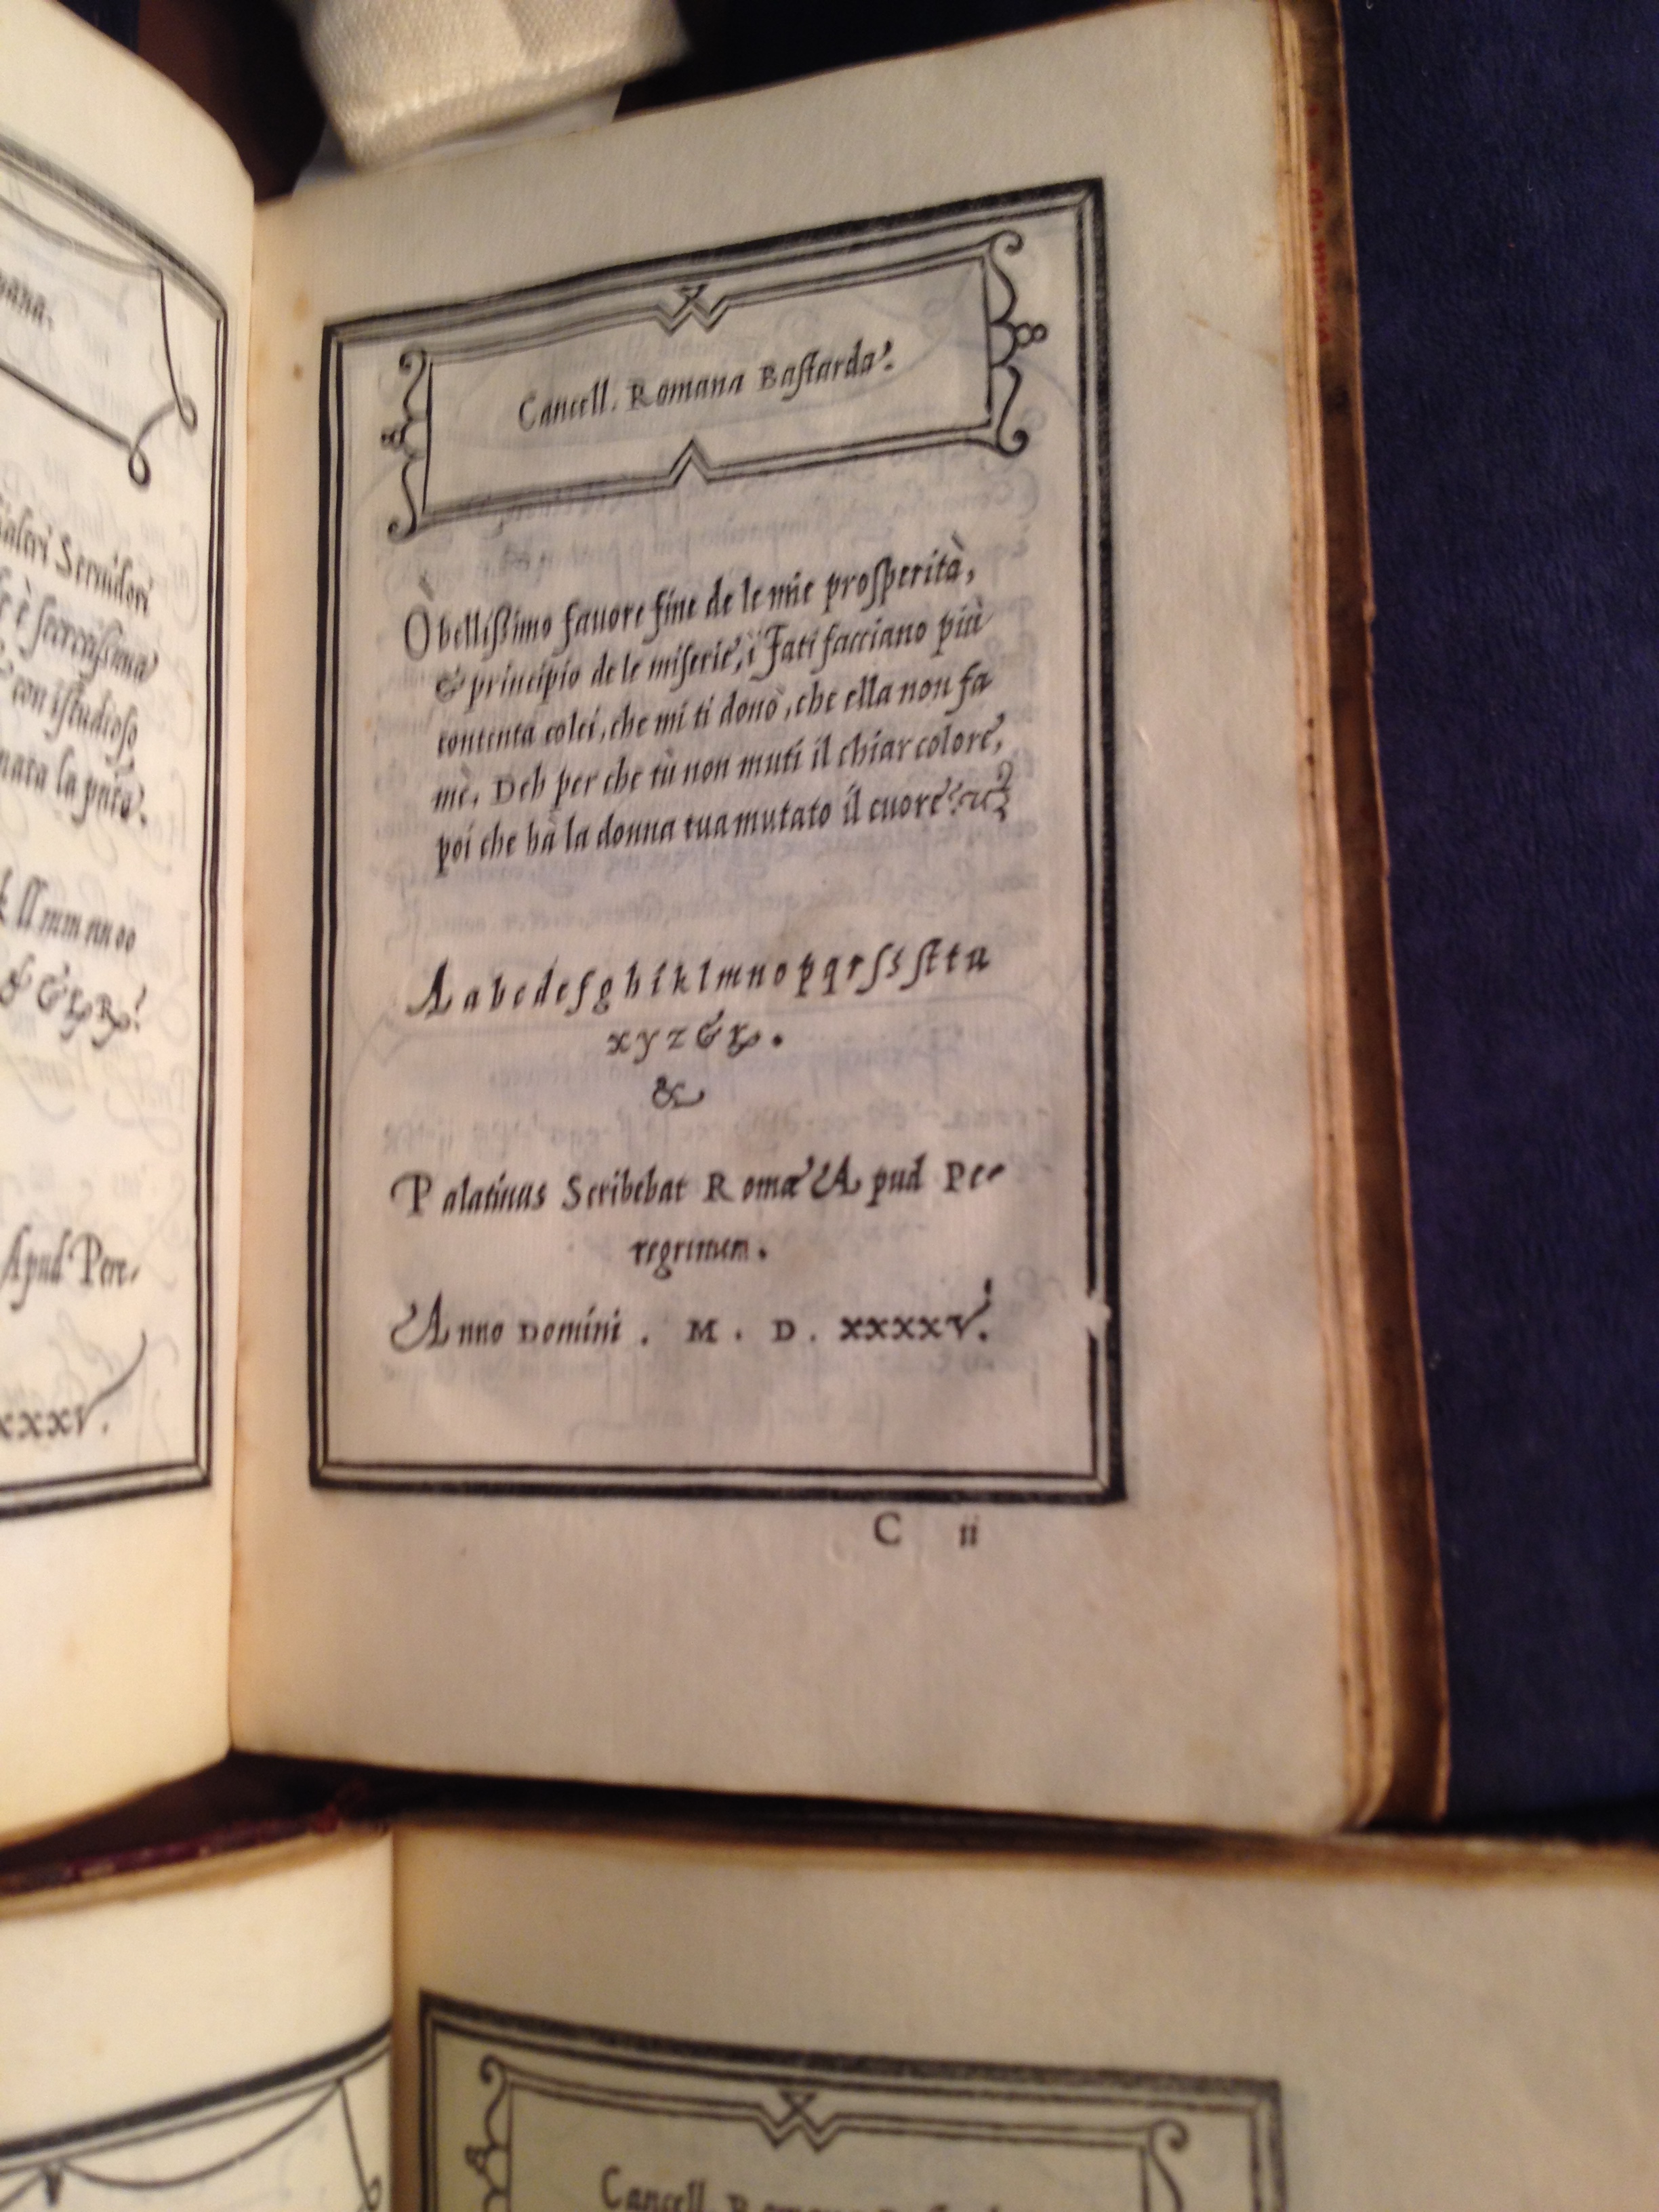 ana.
Sernidori
è
& con istudioso
nata la
k ll mm nn oo
Apud Pere-
xxxV.
Cancell. Romana Baſtarda.
Ò belliſſimo fauore fine de le mie proſperità,
& principio de le miſerie, i Fati facciano più
contenta colei, che mi ti donò, che ella non fa
mè. Deh per che tù non muti il chiar colore,
poi che hà la donna tua mutato il cuore?
A a b c d e f g h i k l m n o p q r ſ s ſt t u
x y z & ꝝ.
&
Palatinus Scribebat Romæ Apud Pe-
regrinum.
Anno Domini . M . D . XXXXV.
C ii
Cancell. Romana